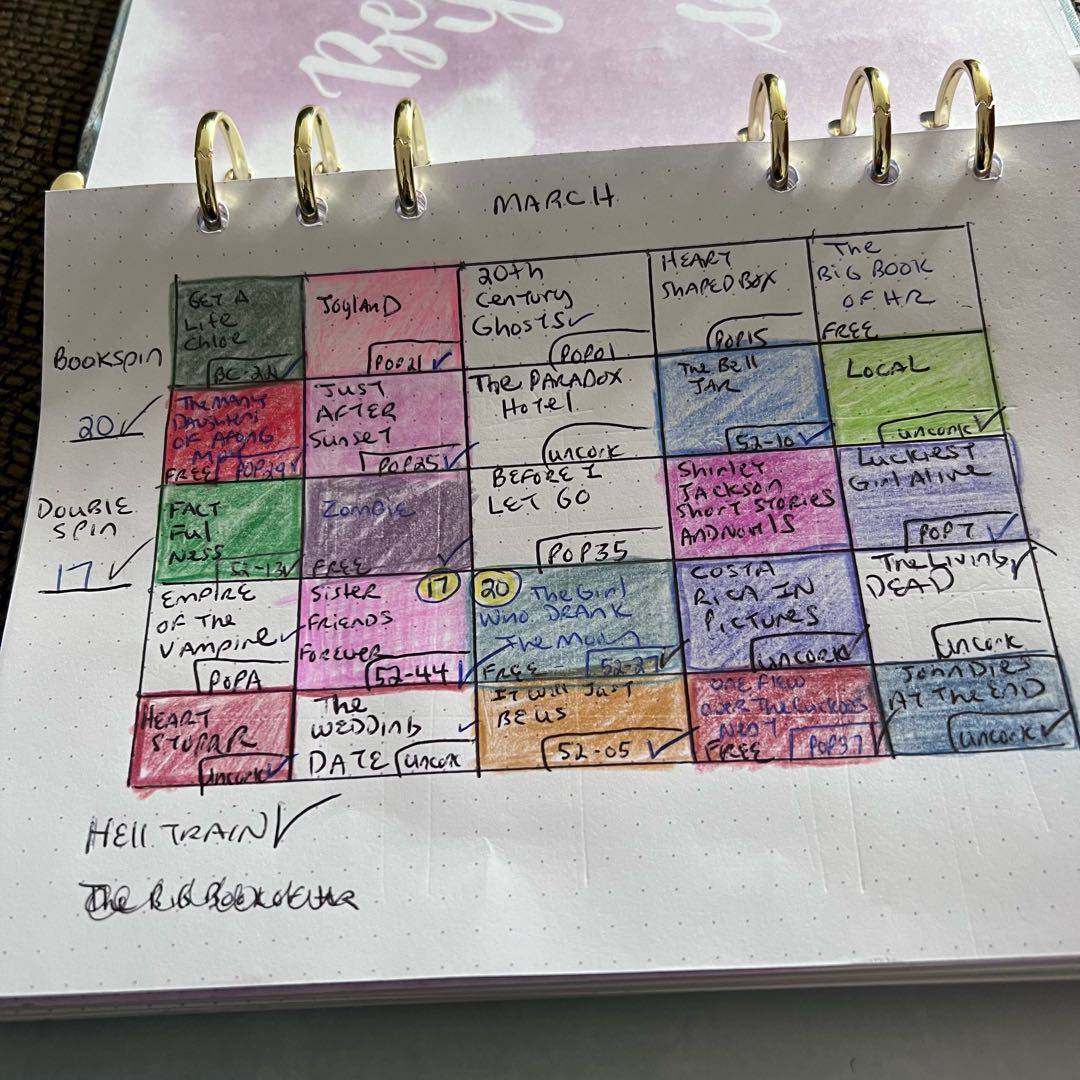 Be
MARCH
BOOKSPIN
20 ✓
DOUBLE
SPIN
17 ✓
GET A
Life
Chloe
BC-22 ✓
JOYLAND
POP21 ✓
20th
Century
Ghosts ✓
POP01
HEART
SHAPED BOX
POP15
The
BIG BOOK
OF HR
FREE
THE MANY
DAUGHTERS
OF AFONG
MOY
FREE POP29 ✓
JUST
AFTER
SUNSET
POP25 ✓
The PARADOX
Hotel
uncork
The Bell
JAR
52-10 ✓
LOCAL
uncork ✓
FACT
Ful
Ness
52-13 ✓
Zombie
FREE ✓
BEFORE I
LET GO
POP35
Shirley
Jackson
Short STORIES
AND NOVELS
LUCKIEST
Girl Alive
POP7 ✓
EMPIRE
OF THE
VAMPIRE ✓
POPA
Sister 17
FRIENDS
FOREVER
52-44 ✓
20 The Girl
WHO DRANK
The Moon
FREE 52-27 ✓
COSTA
RICA IN
PICTURES
uncork
The Living ✓
DEAD
uncork
HEART
STOPPER
uncork ✓
The
WEDDING ✓
DATE uncork
IT WILL JUST
BE US
52-05 ✓
ONE FLEW
OVER THE CUCKOOS
NEST
FREE POP37 ✓
JOHN DIES
AT THE END
uncork ✓
HELL TRAIN ✓